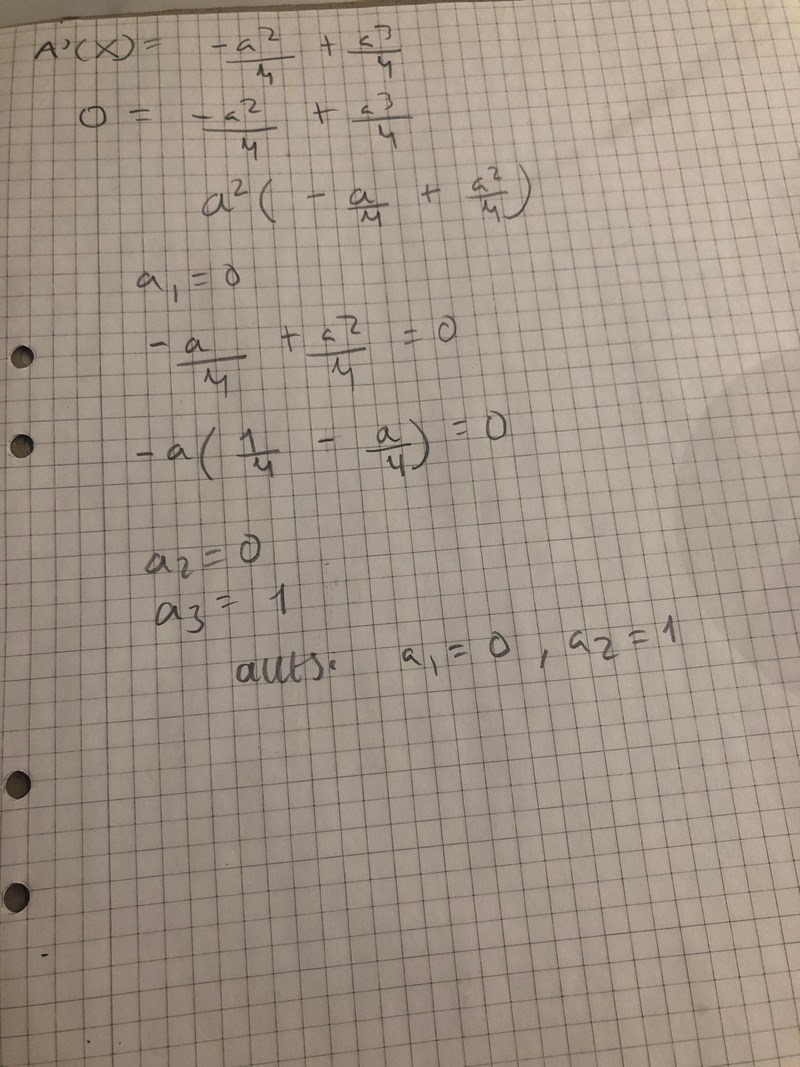 A'(x) = -a²/4 + a³/4
0 = -a²/4 + a³/4
a²( - a/4 + a²/4 )
a₁ = 0
- a/4 + a²/4 = 0
-a( 1/4 - a/4 ) = 0
a₂ = 0
a₃ = 1
a₁ = 0 , a₂ = 1